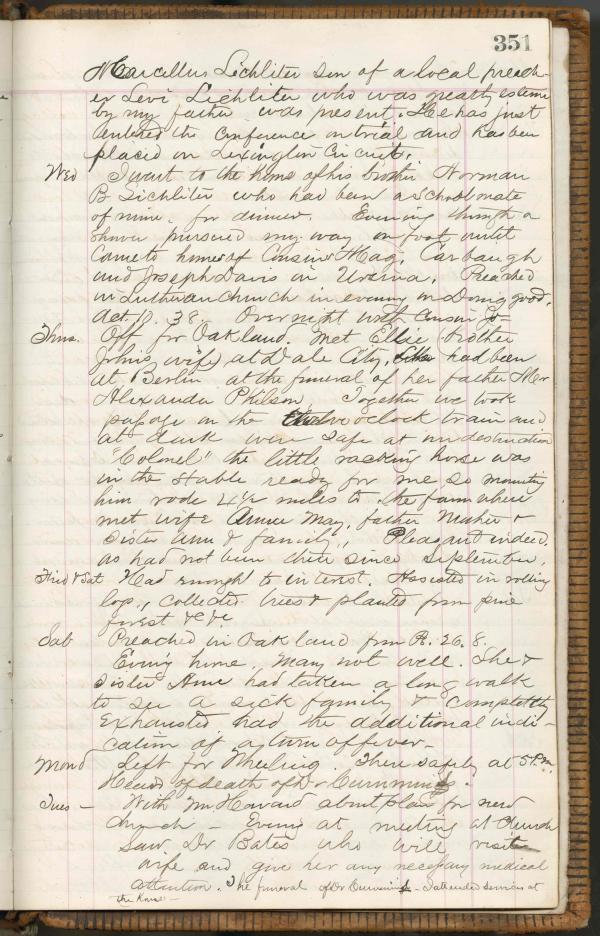 351
Marcellus Lichliter son of a local preach-
er Levi Lichliter who was greatly esteem
by my father was present. He has just
entered the Conference on trial and has been
placed on Lexington Circuit.
Wed I went to the home of his brother Norman
B Lichliter who had been a schoolmate
of mine, for dinner. Evening through a
shower pursued my way on foot until
came to homes of Cousins Mag. Carbaugh
and Joseph Davis in Ursina. Preached
in Lutheran Church in evening on Doing good.
Act. 10. 38. Over night with Cousin Jo-
Thurs. Off for Oakland. Met Ellie (brother
John's wife) at Dale City, who had been
at Berlin at the funeral of her father Mr
Alexander Philson. Together we took
passage on the twelve oclock train and
at dark were safe at our destination
"Colonel" the little racking horse was
in the stable ready for me so mounting
him rode 4 1/2 miles to the farm where
met wife Annie May, father Maher &
sister Ann & family. Pleasant indeed.
as had not been there since September.
Frid & Sat Had enough to interest. Assisted in rolling
logs, collected trees & planted from pine
forest &c &c.
Sab Preached in Oakland from Ps. 26. 8.
Evening home. May not well. She &
sister Ann had taken a long walk
to see a sick family & completely
exhausted had the additional indi-
cation of a turn of fever-
Mond Left for Wheeling. There safely at 5 P.m.
Heard of death of Dr Cummins.
Tues - With Mr. Howard about plan for new
church - Evening at meeting at Church
Saw Dr Bates who will visit
wife and give her any necessary medical
attention. The funeral of Dr Cummins - I attended services at
the house -